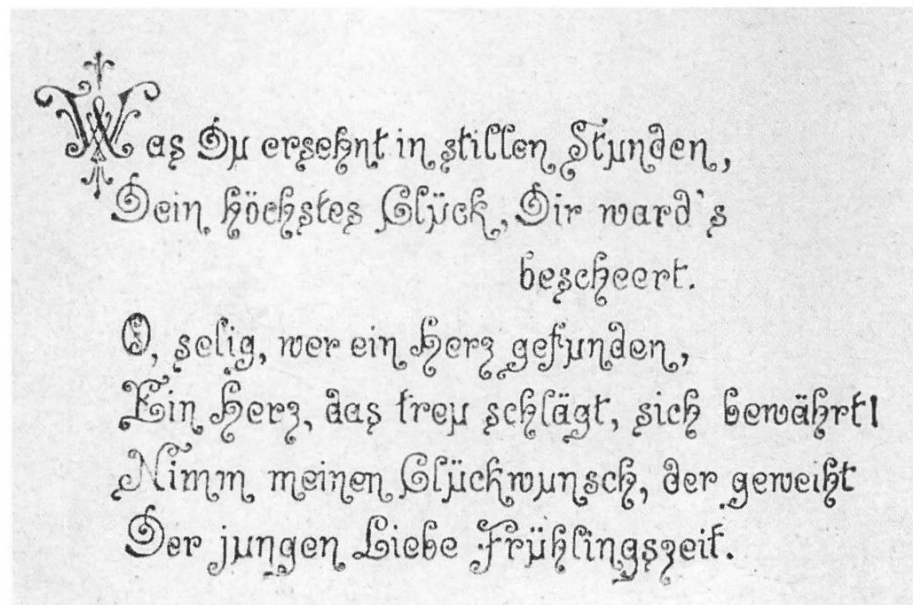 Was Du ersehnt in stillen Stunden,
Dein höchstes Glück, Dir ward's
bescheert.
O, selig, wer ein Herz gefunden,
Ein Herz, das treu schlägt, sich bewährt!
Nimm meinen Glückwunsch, der geweiht
Der jungen Liebe Frühlingszeit.